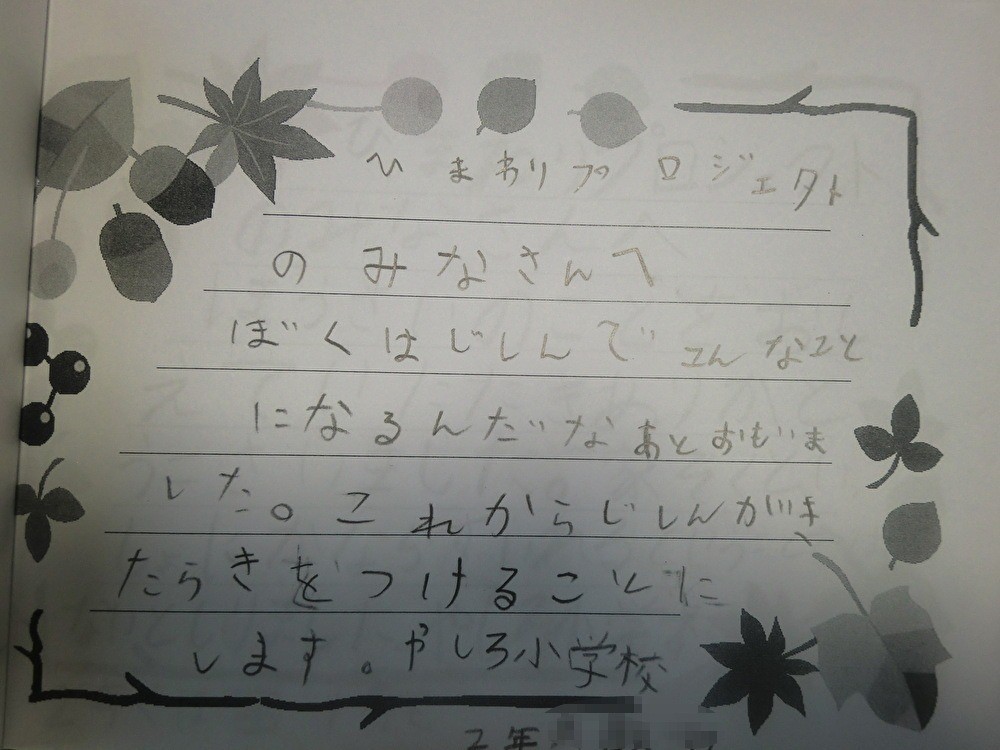 ひまわりプロジェクト
のみなさんへ
ぼくはじしんでこんなこと
になるんだなあとおもいま
した。これからじしんがき
たらきをつけることに
します。やしろ小学校
2年